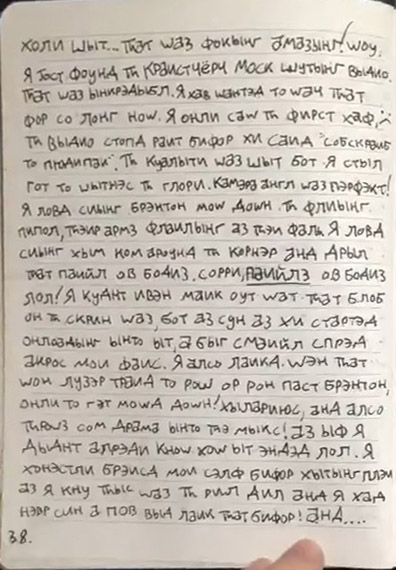 ХОЛИ ШЫТ... ТhАТ WАЗ ФОКЫНГ АМАЗЫНГ! WОУ.
Я ТОСТ ФОУНД Тh КРАИСТЧЁРЧ МОСК ШУТЫНГ ВЫДИО.
ТhАТ WАЗ ЫНКРЭДЫБЛ. Я ХАВ WАНТЭД ТО WАЧ ТhАТ
ФОР СО ЛОНГ НОW. Я ОНЛИ САW Тh ФИРСТ ХАФ,
Тh ВЫДИО СТОПД РАИТ БИФОР ХИ САИД "СОБСКРАИБ
ТО ПЮДИПАИ". Тh КУАЛЫТИ WАЗ ШЫТ БОТ Я СТЫЛ
ГОТ ТО WЫТНЭС Тh ГЛОРИ. КАМЭРА АНГЛ WАЗ ПЭРФЭКТ!
Я ЛОВД СИЫНГ БРЭНТОН МОW ДОWН. Тh ФЛИЫНГ
ПИПОЛ, ТhЭИР АРМЗ ФЛАИЛЫНГ АЗ ТhЭИ ФАЛЬ. Я ЛОВД
СИЫНГ ХЫМ КОМ АРОУНД Тh КОРНЭР АНД
ТhАТ ПАИЙЛ ОВ БОДИЗ. СОРРИ, ПАИЙЛЗ ОВ БОДИЗ
ЛОЛ! Я КУДНТ ИВЭН МАИК ОУТ WАТ ТhАТ БЛОБ
ОН Тh СКРИН WАЗ, БОТ АЗ СУН АЗ ХИ СТАРТЭД
ОНЛОАДЫНГ ЫНТО ЫТ, А БЫГ СМАИЙЛ СПРЭД
АКРОС МОИ ФАИС. Я АЛСО ЛАИКД WЭН ТhАТ
WОН ЛУЗЭР ТРАИД ТО РОW ОР РОН ПАСТ БРЭНТОН,
ОНЛИ ТО ГЭТ МОWД ДОWН! ХЫЛАРИЮС, АНД АЛСО
ТhРОWЗ СОМ ДРАМА ЫНТО ТhЭ МЫКС! АЗ ЫФ Я
ДЫДНТ АЛРЭДИ КНОW ХОW ЫТ ЭНДЭД ЛОЛ. Я
ХОНЭСТЛИ БРЭИСД МОИ СЭЛФ БИФОР ХЫТЫНГ ПЛЭИ
АЗ Я КНУ ТhЫС WАЗ Тh РИЛ ДИЛ АНД Я ХАД
НЭВР СИН А ПОВ ВЫД ЛАИК ТhАТ БИФОР! АНД....
38.